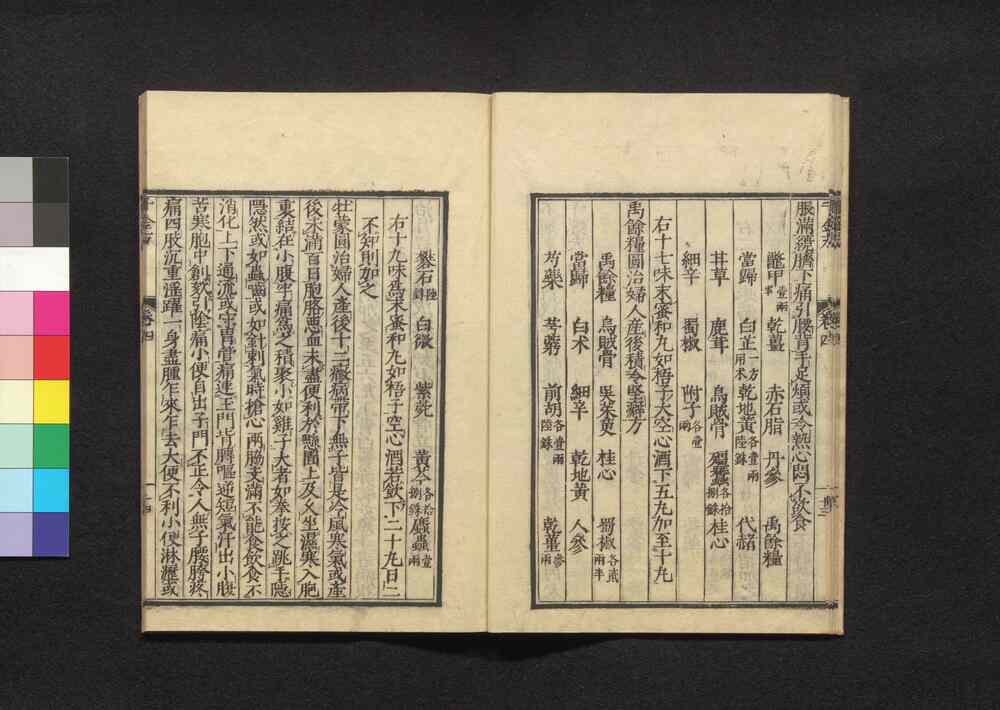 脹滿繞臍下痛引腰背手足煩或冷熱心悶不飲食
鼈甲壹兩半 乾薑 赤石脂 丹參 禹餘糧
當歸 白芷一方用朮 乾地黃各壹兩陸銖 代赭
甘草 鹿茸 烏賊骨 殭蠶各拾捌銖 桂心
細辛 蜀椒 附子各壹兩
右十七味末蜜和丸如梧子大空心酒下五丸加至十丸
禹餘糧圓治婦人産後積冷堅癖方
禹餘糧 烏賊骨 吳茱萸 桂心 蜀椒各貳兩半
當歸 白朮 細辛 乾地黃 人參
芍藥 芎藭 前胡各壹兩陸銖 乾薑參兩
礬石陸銖 白薇 紫菀 黃芩各拾捌銖 䗪蟲壹兩
右十九味爲末蜜和丸如梧子空心酒若飲下二十丸日二
不知則加之
牡蒙圓治婦人産後十二癥病帶下無子皆是冷風寒氣或產
後未滿百日胞胳惡血未盡便利於懸圊上及久坐濕寒入胞
裏結在小腹牢痛爲之積聚小如雞子大者如拳按之跳手隱
隱然或如蟲嚙或如針刺氣時搶心兩脇支滿不能食飲食不
消化上下通流或守胃管痛連玉門背膊嘔逆短氣汗出小腹
苦寒胞中創欬引陰痛小便自出子門不正令人無子腰胯疼
痛四肢沉重淫躍一身盡腫乍來乍去大便不利小便淋瀝或